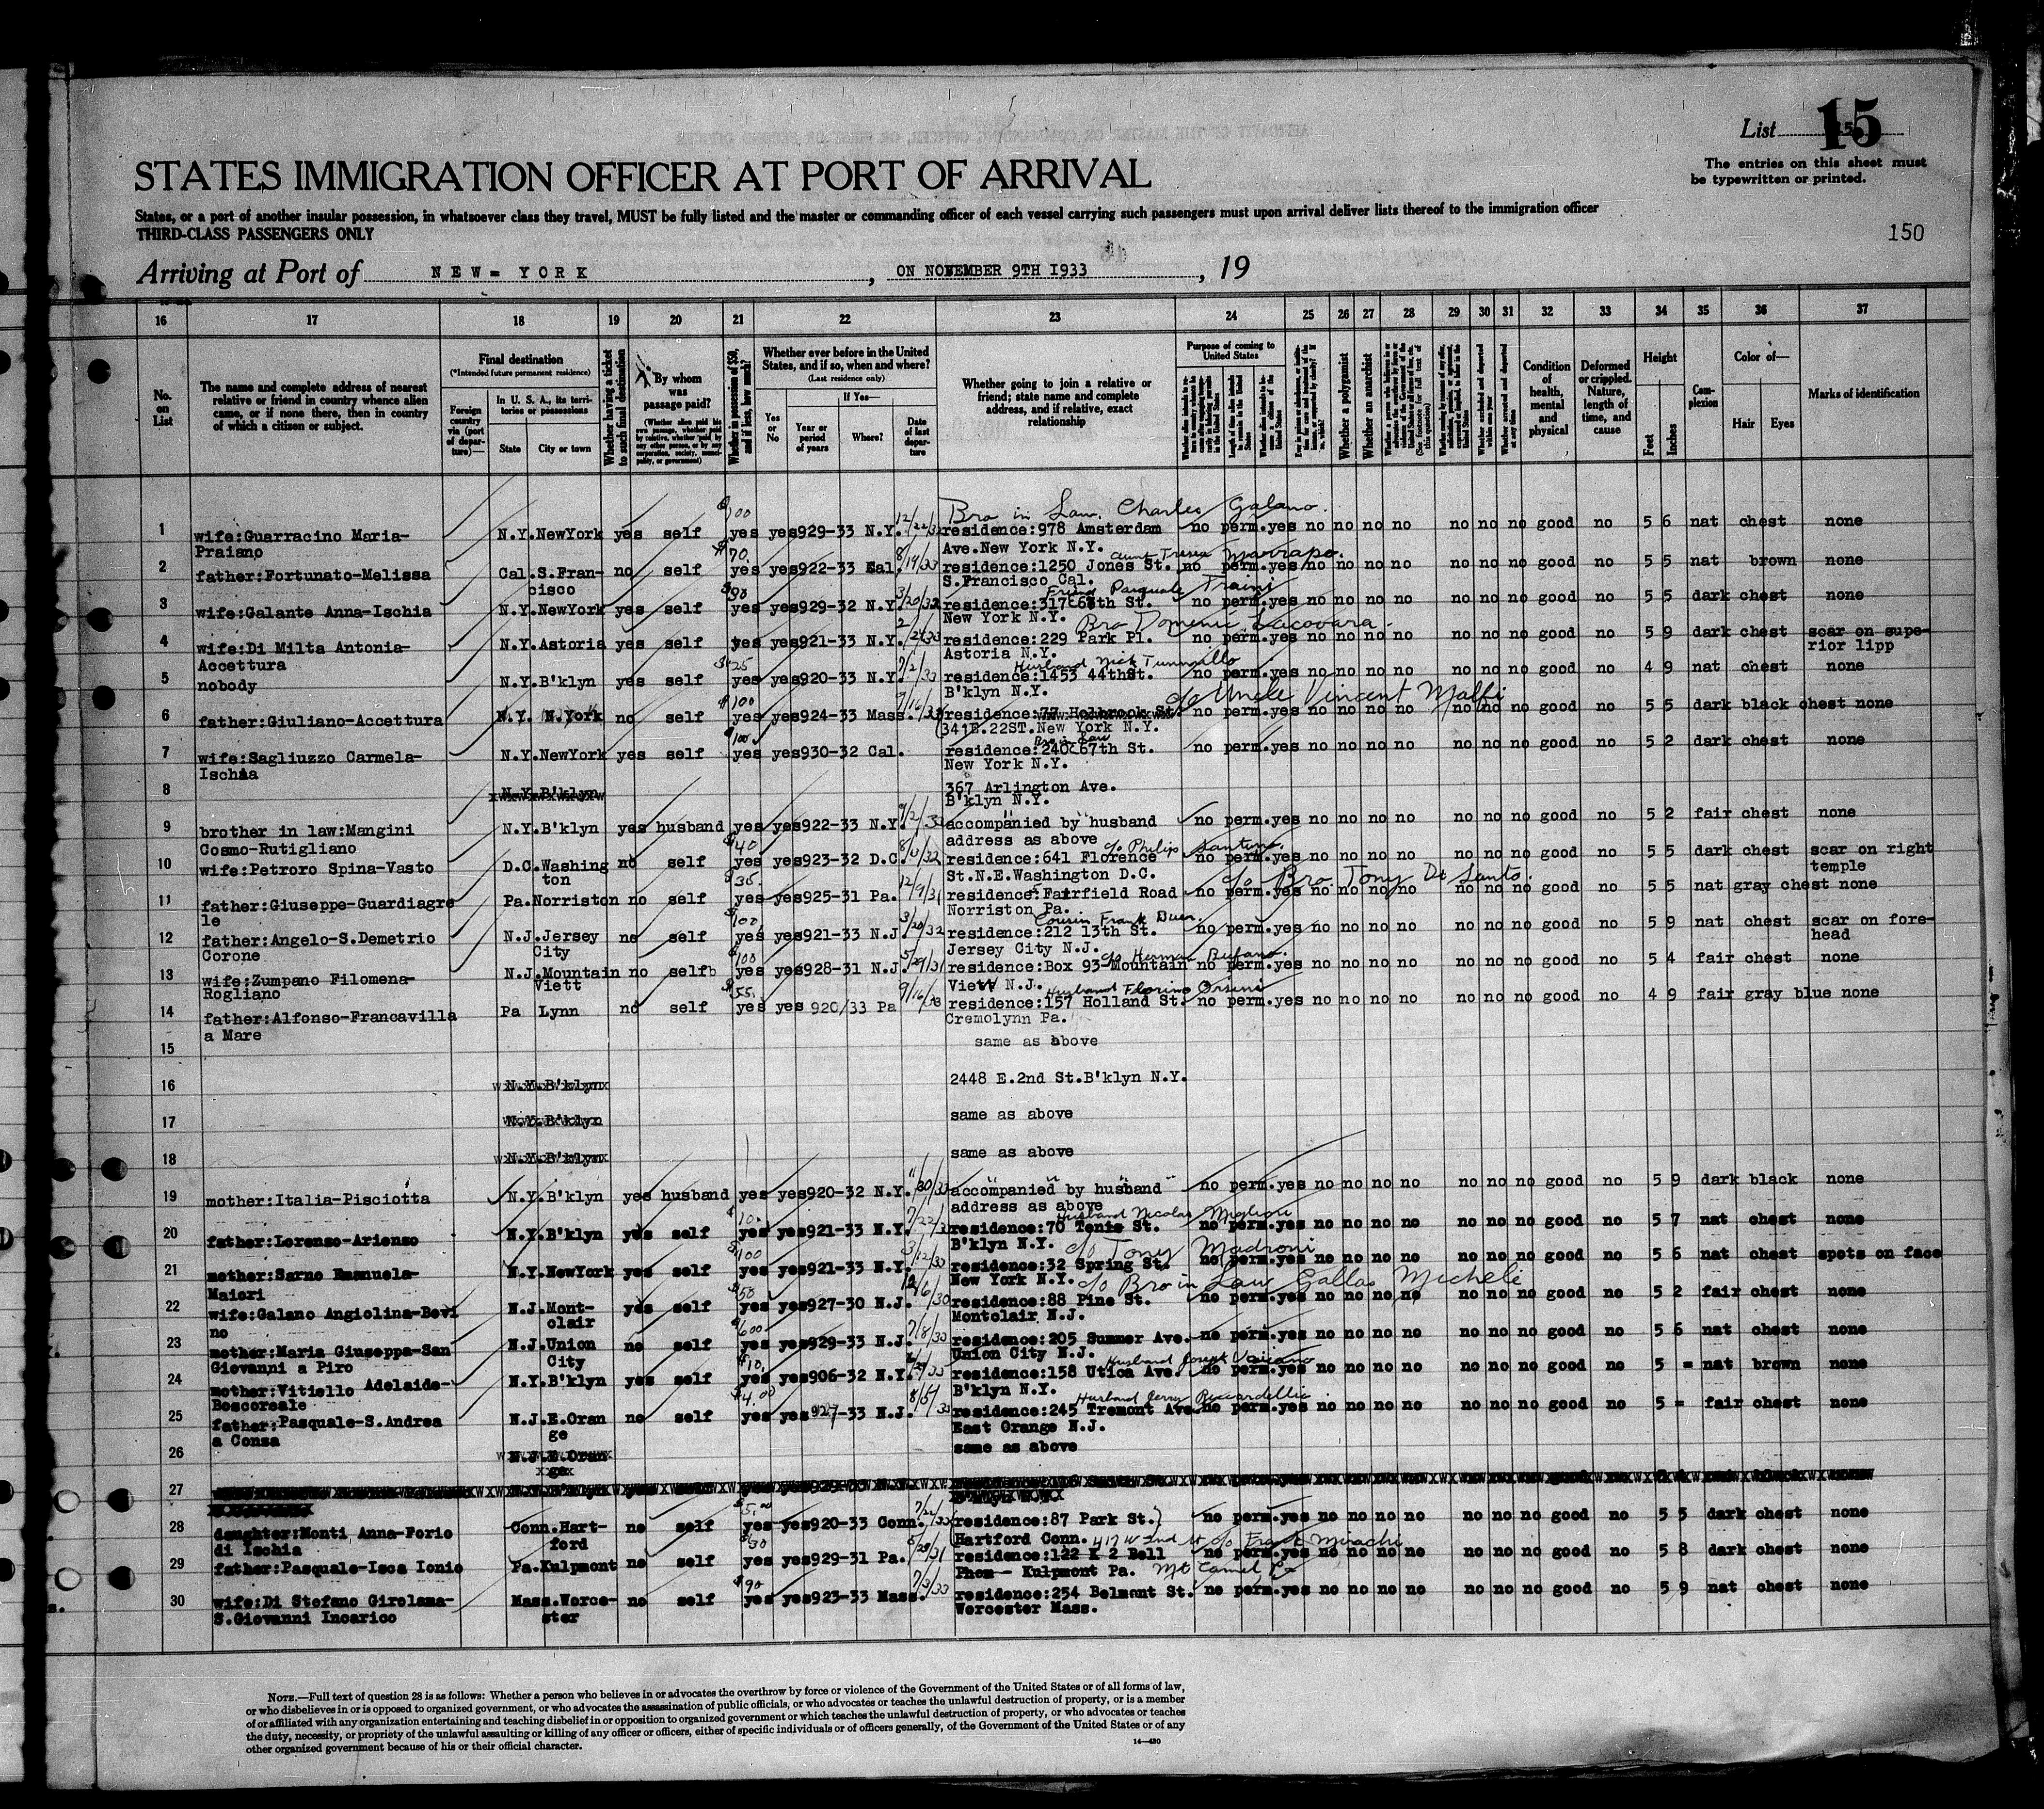 List 15
The entries on this sheet must
be typewritten or printed.
STATES IMMIGRATION OFFICER AT PORT OF ARRIVAL
States, or a port of another insular possession, in whatsoever class they travel, MUST be fully listed and the master or commanding officer of each vessel carrying such passengers must upon arrival deliver lists thereof to the immigration officer
THIRD-CLASS PASSENGERS ONLY
150
Arriving at Port of NEW=YORK, ON NOVEMBER 9TH 1933, 19
16 17 18 19 20 21 22 23 24 25 26 27 28 29 30 31 32 33 34 35 36 37
No. on List
The name and complete address of nearest relative or friend in country whence alien came, or if none there, then in country of which a citizen or subject.
Final destination
(*Intended future permanent residence)
Foreign country via (port of departure)—
In U. S. A., its territories or possessions
State
City or town
Whether having a ticket to such final destination
By whom was passage paid?
(Whether alien paid his own passage, whether paid by relative, whether paid by any other person, or by any corporation, society, municipality, or government)
Whether in possession of $50, and if less, how much?
Whether ever before in the United States, and if so, when and where?
(Last residence only)
Yes or No
If Yes—
Year or period of years
Where?
Date of last departure
Whether going to join a relative or friend; state name and complete address, and if relative, exact relationship
Purpose of coming to United States
Length of time alien intends to remain in the United States
Whether a polygamist
Whether an anarchist
Condition of health, mental and physical
Deformed or crippled. Nature, length of time, and cause
Height
Feet
Inches
Complexion
Color of—
Hair
Eyes
Marks of identification
$100 12/22/32 Bro in Law. Charles Galano.
1 wife:Guarracino Maria- N.Y.NewYork yes self yes yes929-33 N.Y. residence:978 Amsterdam no perm.yes no no no no no no no good no 5 6 nat chest none
Praiano Ave.New York N.Y.
$70 8/19/33 Aunt Tresea Marrapo.
2 father:Fortunato-Melissa Cal.S.Fran- no self yes yes922-33 Cal. residence:1250 Jones St. no perm.yes no no no no no no no good no 5 5 nat brown none
cisco S.Francisco Cal.
$90 3/20/32 Friend Pasquale Traini
3 wife:Galante Anna-Ischia N.Y.NewYork yes self yes yes929-32 N.Y. residence:317 67th St. no perm.yes no no no no no no no good no 5 5 dark chest none
New York N.Y. Bro Domenic Lacovara.
4 wife:Di Milta Antonia- N.Y.Astoria yes self yes yes921-33 N.Y. residence:229 Park Pl. no perm.yes no no no no no no no good no 5 9 dark chest scar on supe-
Accettura Astoria N.Y. rior lipp
$25 7/2/33 Husband Nick
5 nobody N.Y.B'klyn yes self yes yes920-33 N.Y. residence:1453 44thSt. no perm.yes no no no no no no no good no 4 9 nat chest none
B'klyn N.Y.
$100 c/o Uncle Vincent Malfi
6 father:Giuliano-Accettura N.Y. N.York no self yes yes924-33 Mass. residence:77 Holbrook St. no perm.yes no no no no no no no good no 5 5 dark black chest none
341E.22ST.New York N.Y.
$100 Bro in Law
7 wife:Sagliuzzo Carmela- N.Y.NewYork yes self yes yes930-32 Cal. residence:240 67th St. no perm.yes no no no no no no no good no 5 2 dark chest none
Ischia New York N.Y.
8 N.Y.B'klyn 367 Arlington Ave.
B'klyn N.Y.
9 brother in law:Mangini N.Y.B'klyn yes husband yes yes922-33 N.Y. accompanied by husband no perm.yes no no no no no no no good no 5 2 fair chest none
Cosmo-Rutigliano address as above
$40 c/o Philip Santino.
10 wife:Petroro Spina-Vasto D.C.Washing no self yes yes923-32 D.C. residence:641 Florence no perm.yes no no no no no no no good no 5 5 dark chest scar on right
ton St.N.E.Washington D.C. temple
$35. 12/9/31 c/o Bro. Tony De Santo.
11 father:Giuseppe-Guardiagre Pa.Norriston no self yes yes925-31 Pa. residence:Fairfield Road no perm.yes no no no no no no no good no 5 5 nat gray chest none
le Norriston Pa.
$100 3/20/32 Cousin Frank
12 father:Angelo-S.Demetrio N.J.Jersey no self yes yes921-33 N.J. residence:212 13th St. no perm.yes no no no no no no no good no 5 9 nat chest scar on fore-
Corone City Jersey City N.J. head
$100 5/29/31 c/o Herman Rufano.
13 wife:Zumpano Filomena- N.J.Mountain no self yes yes928-31 N.J. residence:Box 93-Mountain no perm.yes no no no no no no no good no 5 4 fair chest none
Rogliano Viett Viett N.J.
$55. Husband Florino Orsini
14 father:Alfonso-Francavilla Pa Lynn no self yes yes 920/33 Pa residence:157 Holland St. no perm.yes no no no no no no no good no 4 9 fair gray blue none
a Mare Cremolynn Pa.
15 same as above
16 N.Y.B'klyn 2448 E.2nd St.B'klyn N.Y.
17 N.Y.B'klyn same as above
18 N.Y.B'klyn same as above
19 mother:Italia-Pisciotta N.Y.B'klyn yes husband yes yes920-32 N.Y. accompanied by husband no perm.yes no no no no no no no good no 5 9 dark black none
address as above
$10. Husband Nicolas Migliori
20 father:Lorenso-Arienso N.Y.B'klyn yes self yes yes921-33 N.Y. residence:70 Tenis St. no perm.yes no no no no no no no good no 5 7 nat chest none
B'klyn N.Y.
$100 3/12/33 c/o Tony Madroni
21 mother:Sarno Emanuela- N.Y.NewYork yes self yes yes921-33 N.Y. residence:32 Spring St. no perm.yes no no no no no no no good no 5 6 nat chest spots on face
Maiori New York N.Y.
$50 c/o Bro in Law Gallas Michele
22 wife:Galano Angiolina-Bovi N.J.Mont- yes self yes yes927-30 N.J. residence:88 Pine St. no perm.yes no no no no no no no good no 5 2 fair chest none
no clair Montclair N.J.
$600 7/8/33
23 mother:Maria Giuseppa-San N.J.Union no self yes yes929-33 N.J. residence:205 Summer Ave. no perm.yes no no no no no no no good no 5 6 nat chest none
Giovanni a Piro City Union City N.J.
$10. Husband Joseph
24 mother:Vitiello Adelaide- N.Y.B'klyn yes self yes yes906-32 N.Y. residence:158 Utica Ave. no perm.yes no no no no no no no good no 5 = nat brown none
Boscoreale B'klyn N.Y.
$4.00 Husband Jerry Riccardellie
25 father:Pasquale-S.Andrea N.J.E.Oran no self yes yes 927-33 N.J. residence:245 Tremont Ave. no perm.yes no no no no no no no good no 5 = fair chest none
a Consa ge East Orange N.J.
26 N.J.E.Oran same as above
ge
27
$5.00
28 daughter:Monti Anna-Forio Conn.Hart- no self yes yes920-33 Conn. residence:87 Park St. no perm.yes no no no no no no no good no 5 5 dark chest none
di Ischia ford Hartford Conn.
$30 417 W 2nd St c/o Frank Mirachi
29 father:Pasquale-Isca Ionio Pa.Kulpmont no self yes yes929-31 Pa. residence:122 K 2 Bell no perm.yes no no no no no no no good no 5 8 dark chest none
Phom— Kulpmont Pa. Mt Camel Pa
$90 7/3/33
30 wife:Di Stefano Girolama- Mass.Worce- no self yes yes923-33 Mass. residence:254 Belmont St. no perm.yes no no no no no no no good no 5 9 nat chest none
S.Giovanni Incarico ster Worcester Mass.
NOTE.—Full text of question 28 is as follows: Whether a person who believes in or advocates the overthrow by force or violence of the Government of the United States or of all forms of law,
or who disbelieves in or is opposed to organized government, or who advocates the assassination of public officials, or who advocates or teaches the unlawful destruction of property, or is a member
of or affiliated with any organization entertaining and teaching disbelief in or opposition to organized government or which teaches the unlawful destruction of property, or who advocates or teaches
the duty, necessity, or propriety of the unlawful assaulting or killing of any officer or officers, either of specific individuals or of officers generally, of the Government of the United States or of any
other organized government because of his or their official character.
14—430